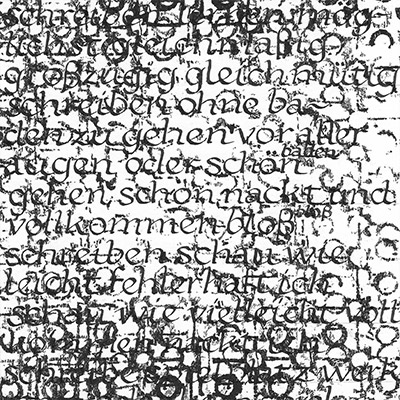 schreiben
gleichmäßig
großzügig gleichmütig
schreiben ohne ba-
den zu gehen vor aller
baden
augen oder schön
gehen, schön nackt und
bloß
vollkommen bloß
schreiben schau wie
leicht fehlerhaft ich
schau wie vielleicht voll
kommen nackt ich
schreibe